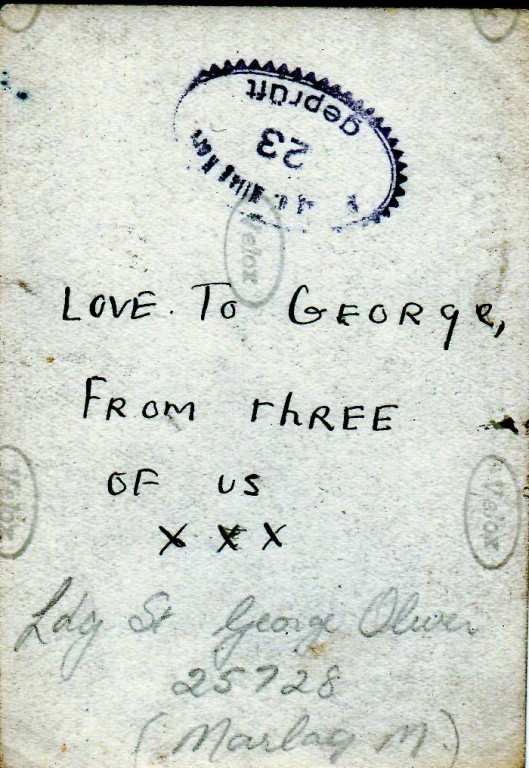 geprüft
23
Velox
LOVE. To GEORGe,
FROM ThREE
OF US
X X X
Velox
Velox
Ldg St George Oliver
25728
(Marlag M.)